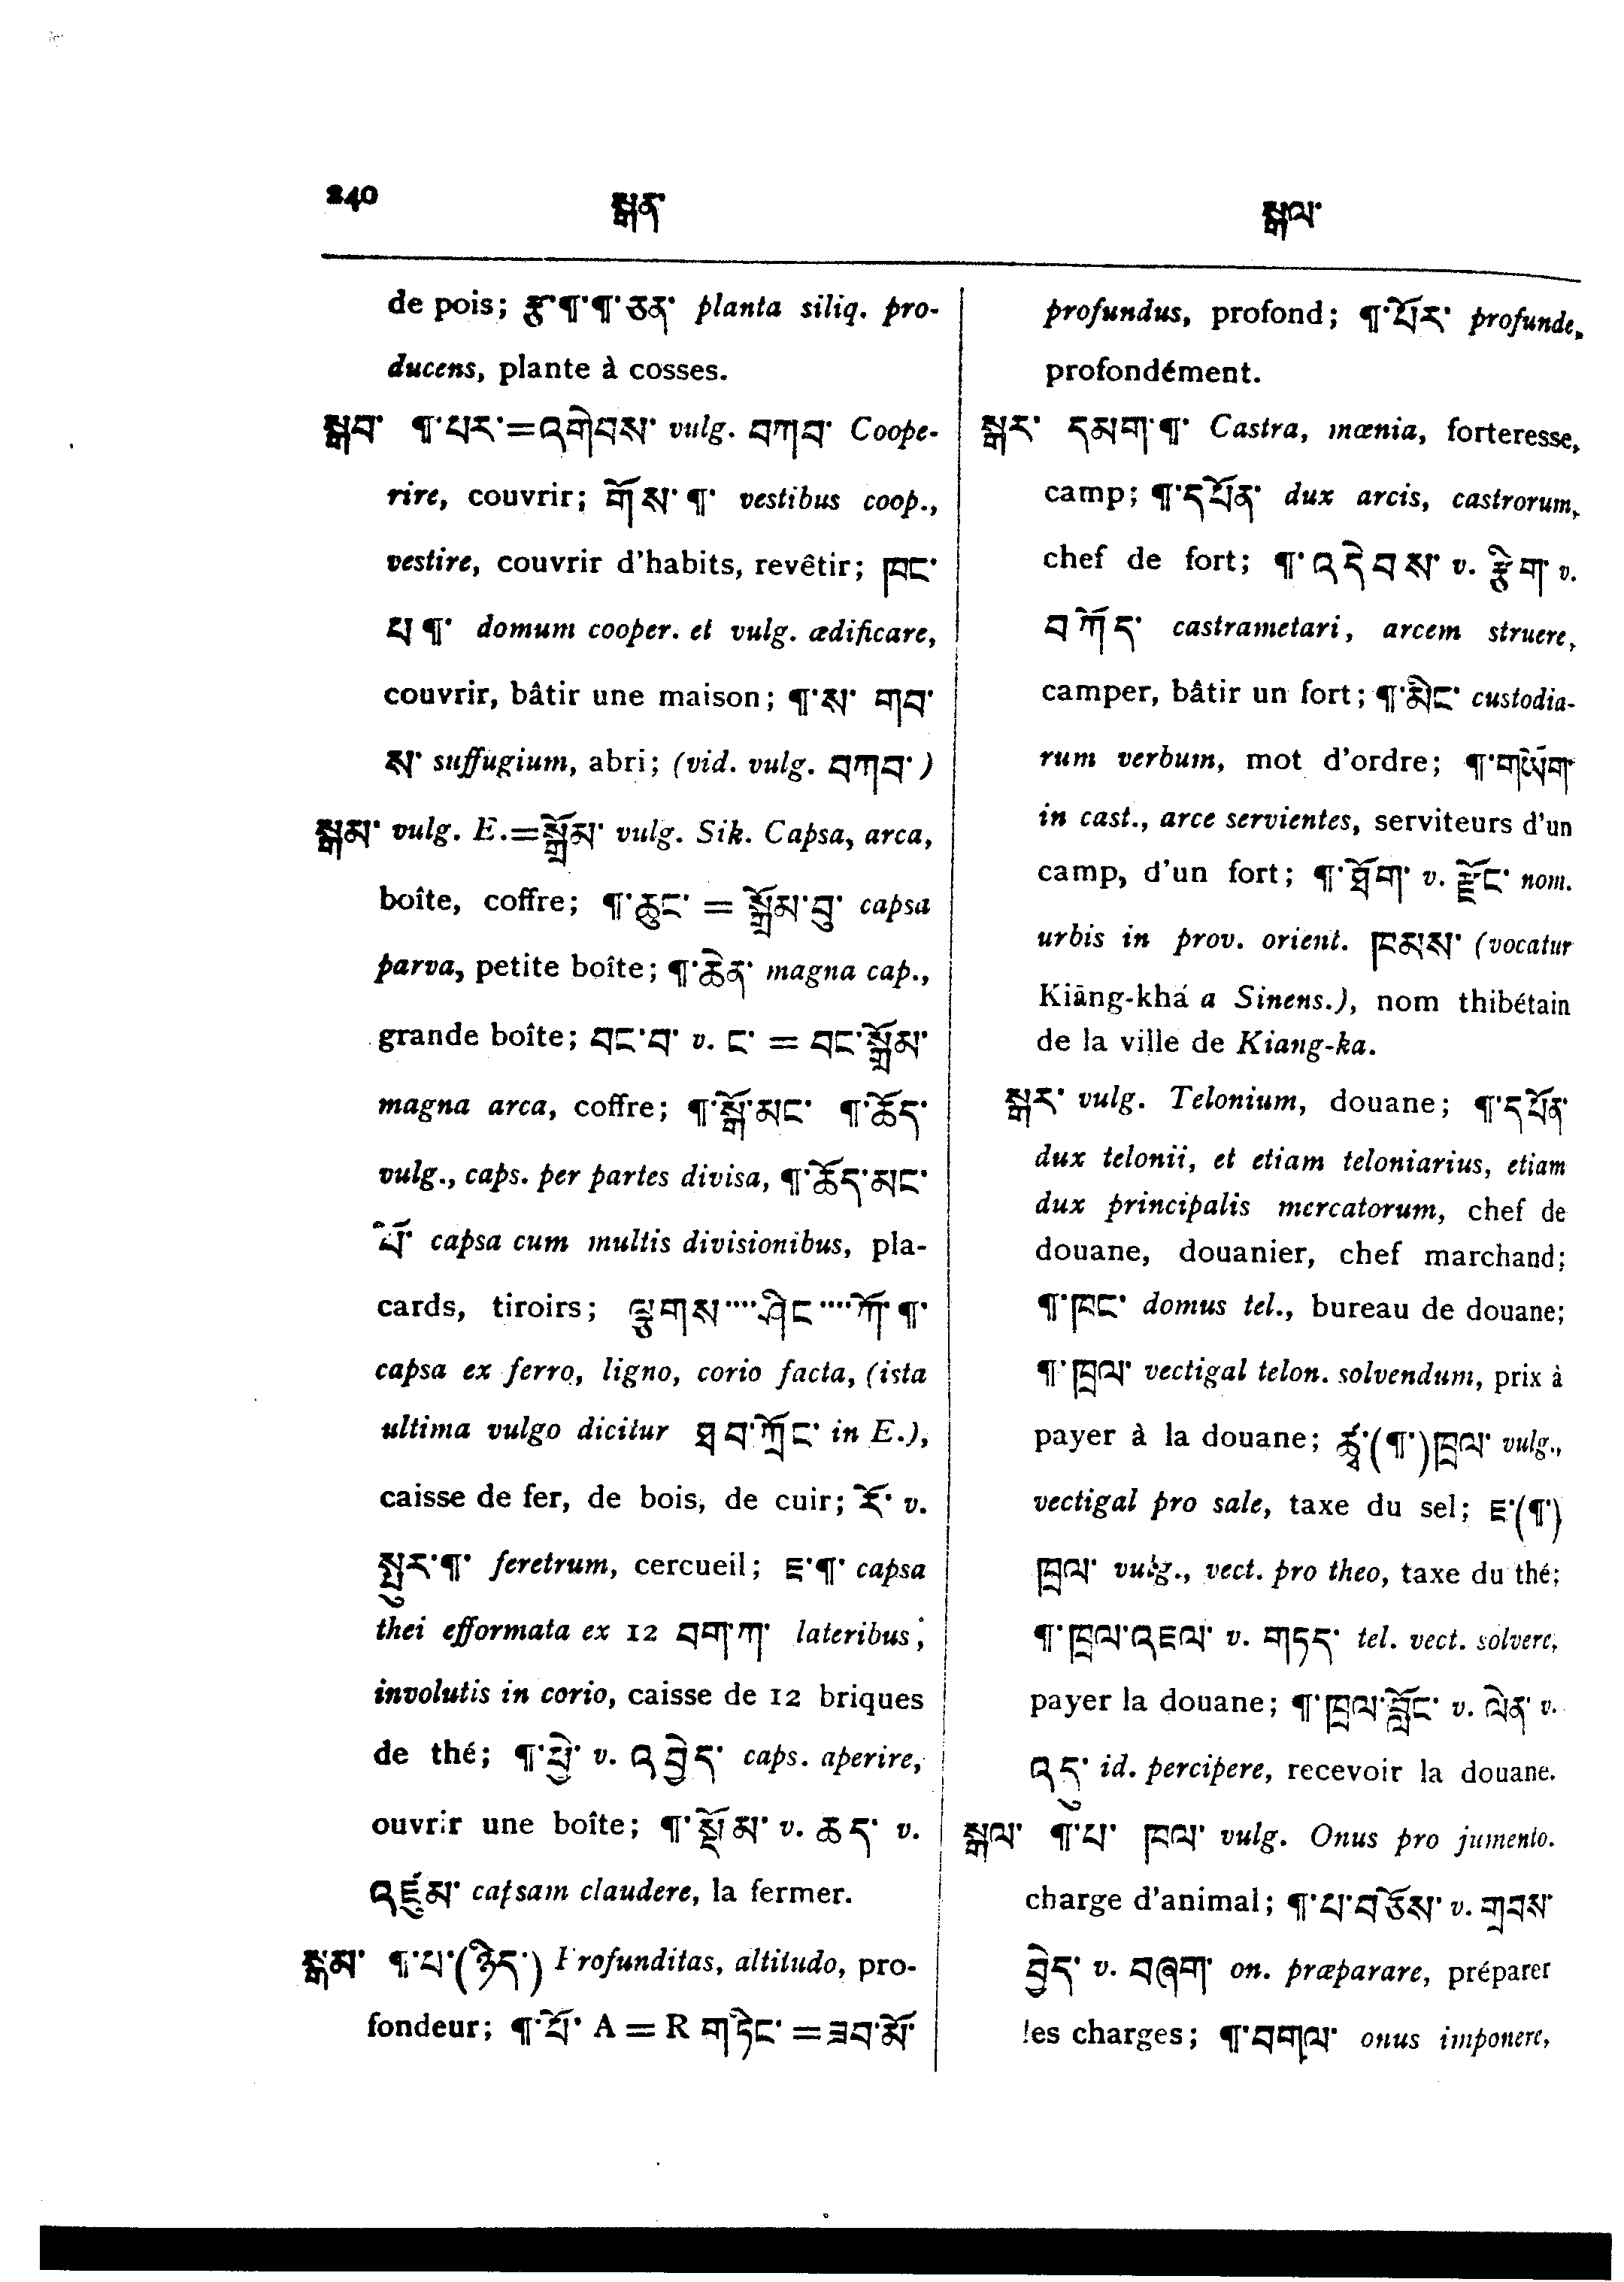 240
སྒན་
སྒལ་
de pois; རྩྭ་¶་¶་ཅན་ planta siliq. pro-
ducens, plante à cosses.
སྒབ་ ¶་པར་=འགེབས་ vulg. བཀབ་ Coope-
rire, couvrir; གོས་¶་ vestibus coop.,
vestire, couvrir d'habits, revêtir; ཁང་
པ¶་ domum cooper. et vulg. ædificare,
couvrir, bâtir une maison; ¶་ས་ གབ་
ས་ suffugium, abri; (vid. vulg. བཀབ་)
སྒམ་ vulg. E.=སྒྲོམ་ vulg. Sik. Capsa, arca,
boîte, coffre; ¶་ཆུང་ = སྒྲོམ་བུ་ capsa
parva, petite boîte; ¶་ཆེན་ magna cap.,
grande boîte; བང་བ་ v. ང་ = བང་སྒྲོམ་
magna arca, coffre; ¶་སྒོ་མང་ ¶་ཚོད་
vulg., caps. per partes divisa, ¶་ཚོད་མང་
པོ་ capsa cum multis divisionibus, pla-
cards, tiroirs; ལྕགས་···ཤིང་···ཀོ་¶་
capsa ex ferro, ligno, corio facta, (ista
ultima vulgo dicitur ཐབ་ཀྲོང་ in E.),
caisse de fer, de bois, de cuir; རོ་ v.
སྤུར་¶་ feretrum, cercueil; ཇ་¶་ capsa
thei efformata ex 12 བག་ཀ་ lateribus,
involutis in corio, caisse de 12 briques
de thé; ¶་ཕྱེ་ v. འབྱེད་ caps. aperire,
ouvrir une boîte; ¶་སྡོམ་ v. ཆད་ v.
འཛུམ་ capsam claudere, la fermer.
སྒམ་ ¶་པ་(ཉིད་) Profunditas, altitudo, pro-
fondeur; ¶་པོ་ A = R གཏིང་ =ཟབ་མོ་
profundus, profond; ¶་པོར་ profunde,
profondément.
སྒར་ དམག་¶་ Castra, mœnia, forteresse,
camp; ¶་དཔོན་ dux arcis, castrorum,
chef de fort; ¶་འདེབས་ v. རྩིག་ v.
བཀོད་ castrametari, arcem struere,
camper, bâtir un fort; ¶་མིང་ custodia-
rum verbum, mot d'ordre; ¶་གཡོག་
in cast., arce servientes, serviteurs d'un
camp, d'un fort; ¶་ཐོག་ v. རྫོང་ nom.
urbis in prov. orient. ཁམས་ (vocatur
Kiāng-khá a Sinens.), nom thibétain
de la ville de Kiang-ka.
སྒར་ vulg. Telonium, douane; ¶་དཔོན་
dux telonii, et etiam teloniarius, etiam
dux principalis mercatorum, chef de
douane, douanier, chef marchand;
¶་ཁང་ domus tel., bureau de douane;
¶་ཁྲལ་ vectigal telon. solvendum, prix à
payer à la douane; ཚྭ་(¶་)ཁྲལ་ vulg.,
vectigal pro sale, taxe du sel; ཇ་(¶་)
ཁྲལ་ vulg., vect. pro theo, taxe du thé;
¶་ཁྲལ་འཇལ་ v. གཏད་ tel. vect. solvere,
payer la douane; ¶་ཁྲལ་སློང་ v. ལེན་ v.
འདུ་ id. percipere, recevoir la douane.
སྒལ་ ¶་པ་ ཁལ་ vulg. Onus pro jumento.
charge d'animal; ¶་པ་བཅོས་ v. གྲབས་
བྱེད་ v. བཞག་ on. præparare, préparer
les charges; ¶་བགལ་ onus imponere,